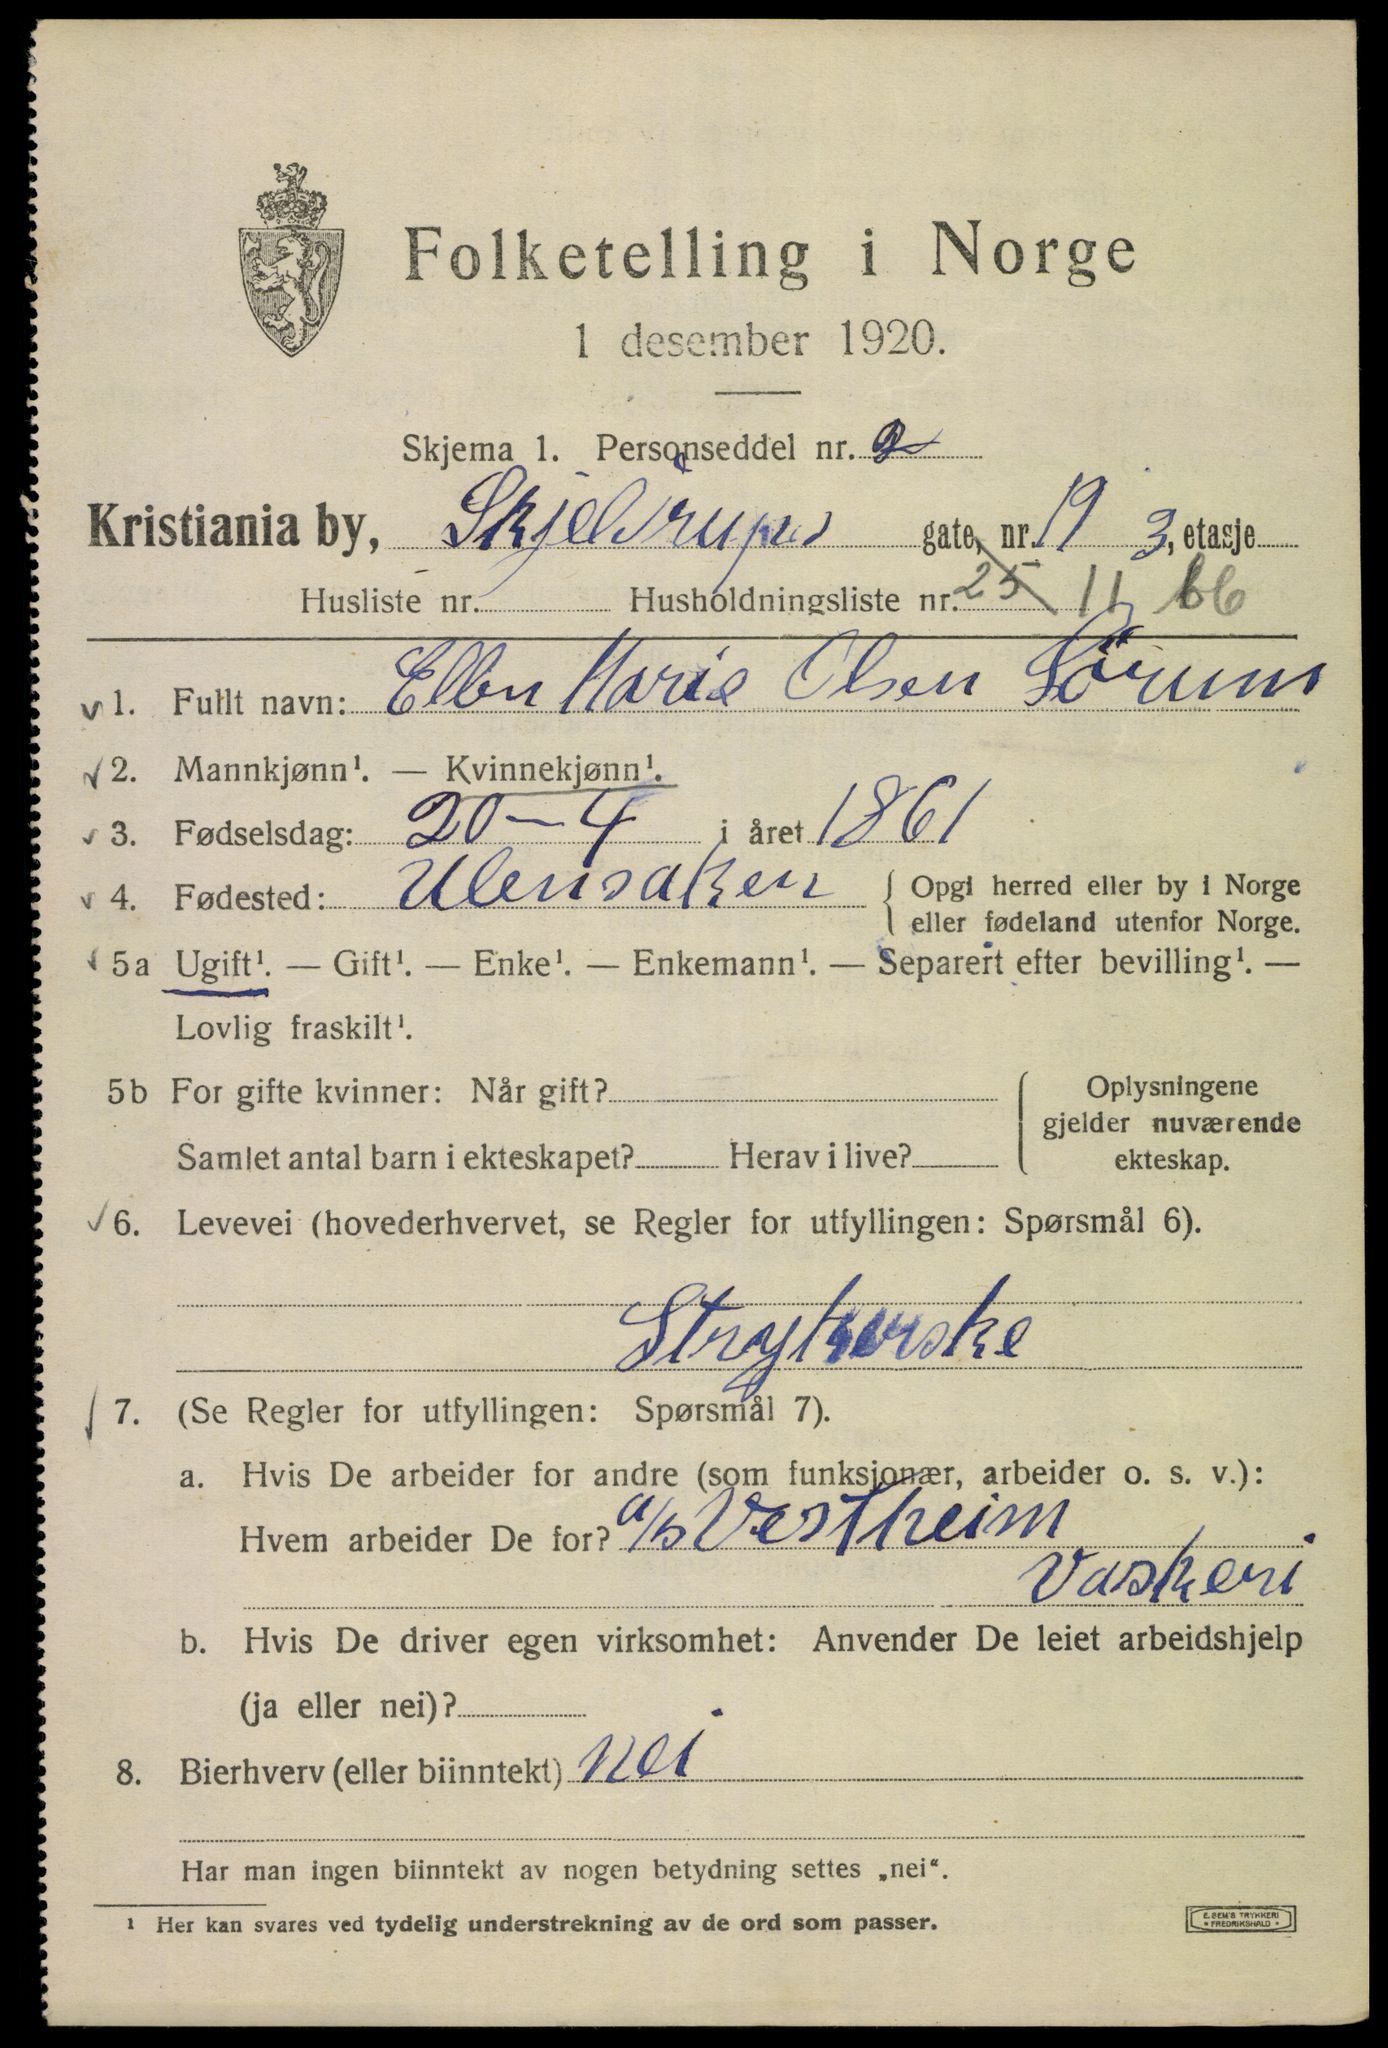 Folketelling i Norge
1 desember 1920.
Skjema 1. Personseddel nr. 2
Kristiania by, Skjeldrups gate, nr. 19 3, etasje
Husliste nr. Husholdningsliste nr. 25 11 66
1. Fullt navn: Ellen Marie Olsen Sörum
2. Mannkjønn¹. — Kvinnekjønn¹.
3. Fødselsdag: 20-4 i året 1861
4. Fødested: Ulensaken { Opgi herred eller by i Norge
eller fødeland utenfor Norge.
5a Ugift¹. — Gift¹. — Enke¹. — Enkemann¹. — Separert efter bevilling¹. —
Lovlig fraskilt¹.
5b For gifte kvinner: Når gift? Oplysningene
gjelder nuværende
Samlet antal barn i ekteskapet? Herav i live? ekteskap.
6. Levevei (hovederhvervet, se Regler for utfyllingen: Spørsmål 6).
Strykerske
7. (Se Regler for utfyllingen: Spørsmål 7).
a. Hvis De arbeider for andre (som funksjonær, arbeider o. s. v.):
Hvem arbeider De for? a/s Vestheim
Vaskeri
b. Hvis De driver egen virksomhet: Anvender De leiet arbeidshjelp
(ja eller nei)?
8. Bierhverv (eller biinntekt) nei
Har man ingen biinntekt av nogen betydning settes „nei“.
¹ Her kan svares ved tydelig understrekning av de ord som passer.
E. SEM'S TRYKKERI
• FREDRIKSHALD •